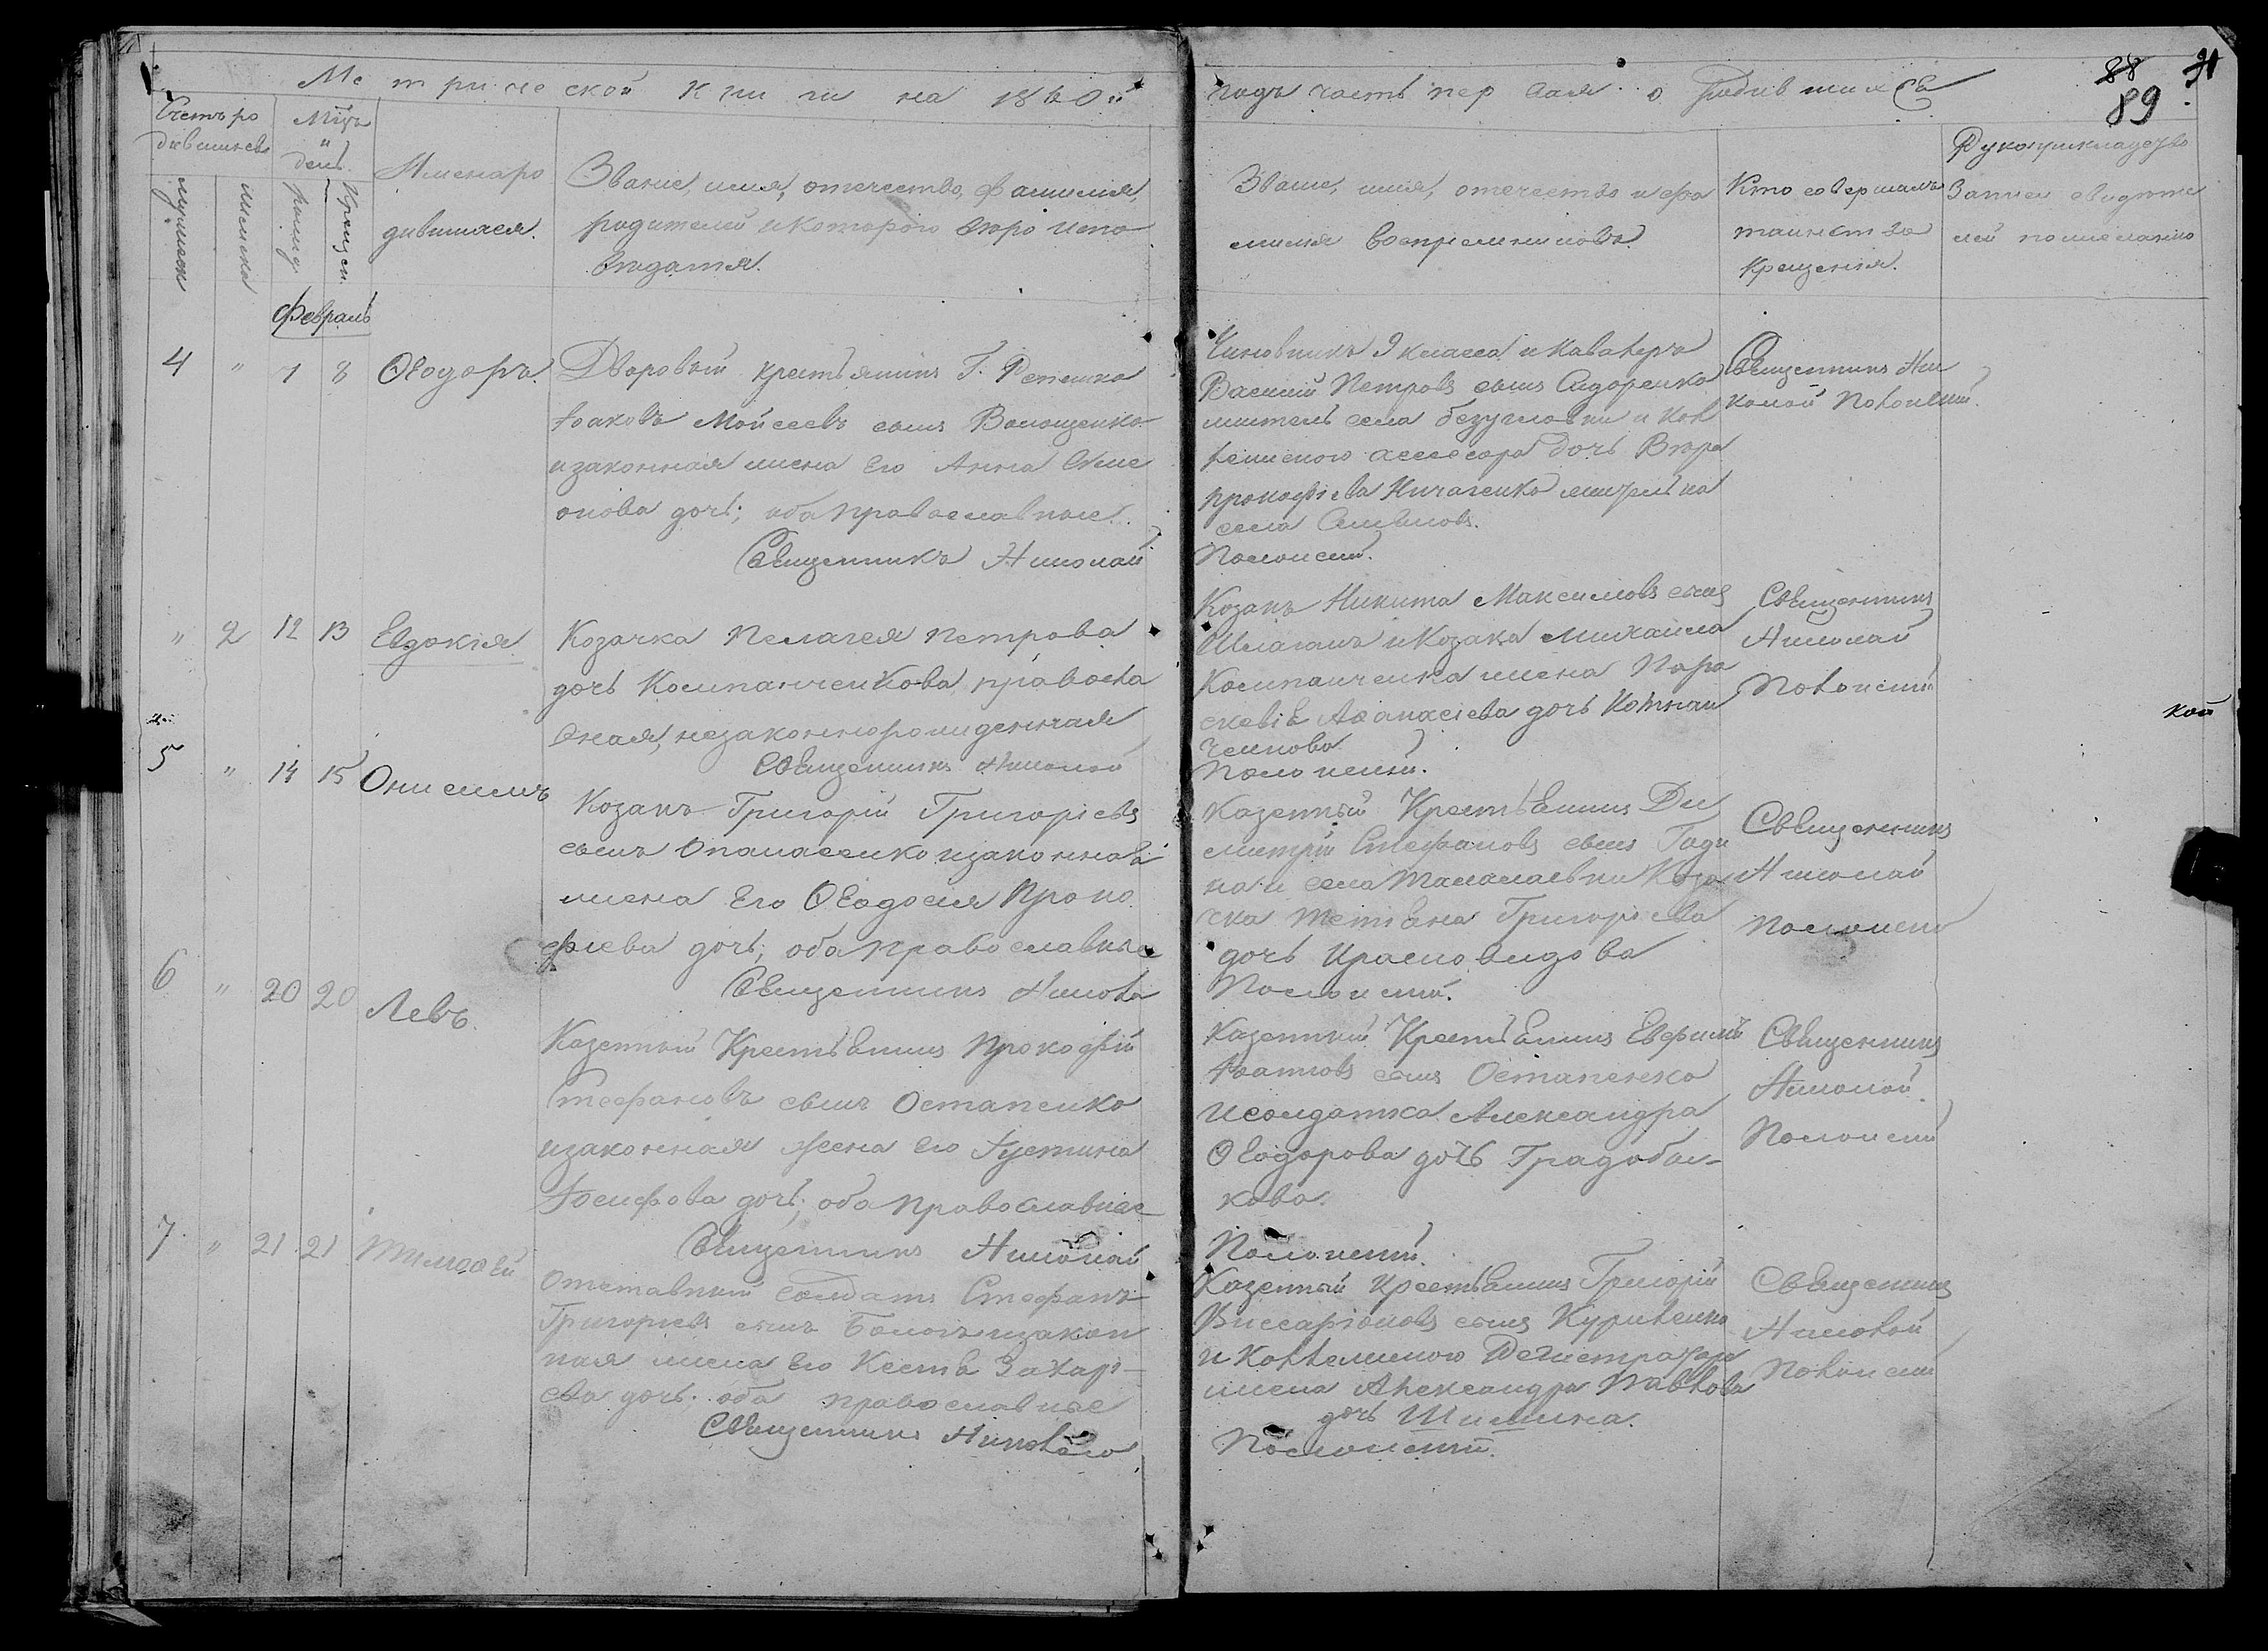 Метрической книги на 1860й
годъ часть первая о Родившихся
88
89
Счетъ ро
дившихся
Мцъ
и
день
Имена ро
дившихся.
Званіе, имя, отечество, фамилія,
родителей и которого вѣроиспо
вѣданія.
мужеск
женска
рожд
Крещен.
Званіе, имя, отечество и фа
милія воспріемниковъ.
Кто совершалъ
таинство
Крещенія.
Рукоприкладство
Записи свидѣте
лей по желанію
Февраль
4 " 7 8 Ѳеодоръ.
Дворовый крестьянинъ Г. Репешка
Іоаковъ Мойсеевъ сынъ Волощенко
и законная жена Его Анна Симе
онова дочь; оба православные.
Священникъ Николай
Чиновникъ 9 класса и Кавалеръ
Василій Петровъ сынъ Сидоренко
житель села безугловки и Кол
лежского ассесора дочь Вѣра
прокофіева Ничаенко жителька
села
Полонскій.
Священникъ Ни
колай Полонскій.
" 2 12 13 Евдокія
Козачка Пелагея петрова
дочь Компанченкова, правосла
вная, незаконнорожденная
Священникъ Николай
Козакъ Никита Максимовъ сынъ
и Козака Михаила
Компанченка жена Пара
скевія Аѳанасіева дочь Компан
ченкова
Полонскій.
Священникъ
Николай
Полонскій
кой
5 " 14 15 Онисимъ
Козакъ Григорій Григоріевъ
сынъ Опанасенко и законная
жена Его Ѳеодосія Проко
фіева дочь; оба православные
Священникъ Никола
Казенный Крестьянинъ Ди
митрій Стефановъ сынъ
села Талалаевки Коза
чка Тетіяна Григоріева
дочь Красновидова
Полонскій.
Священникъ
Николай
Полонскій
6 " 20 20 Левъ.
Казенный Крестьянинъ Прокофій
Стефановъ сынъ Остапенко
и законная жена Его Іустина
Іосифова дочь; оба православные
Священникъ Николай
Казенный Крестьянинъ Евфимій
сынъ Остапенко
и солдатка Александра
Ѳеодорова дочь Градобаи-
кова.
Полонскій.
Священникъ
Николай
Полонскій
7 " 21 21 Тимоѳей
Отставный солдатъ Стефанъ
Григоріевъ сынъ и закон
ная жена Его Ксенія Захарі-
ева дочь; оба православные
Священникъ Николай
Казенный Крестьянинъ Григорій
Виссаріоновъ сынъ Куриленко
и Коллежского Регистратора
жена Александра Павлова
дочь Шишкина.
Полонскій.
Священникъ
Николай
Полонскій